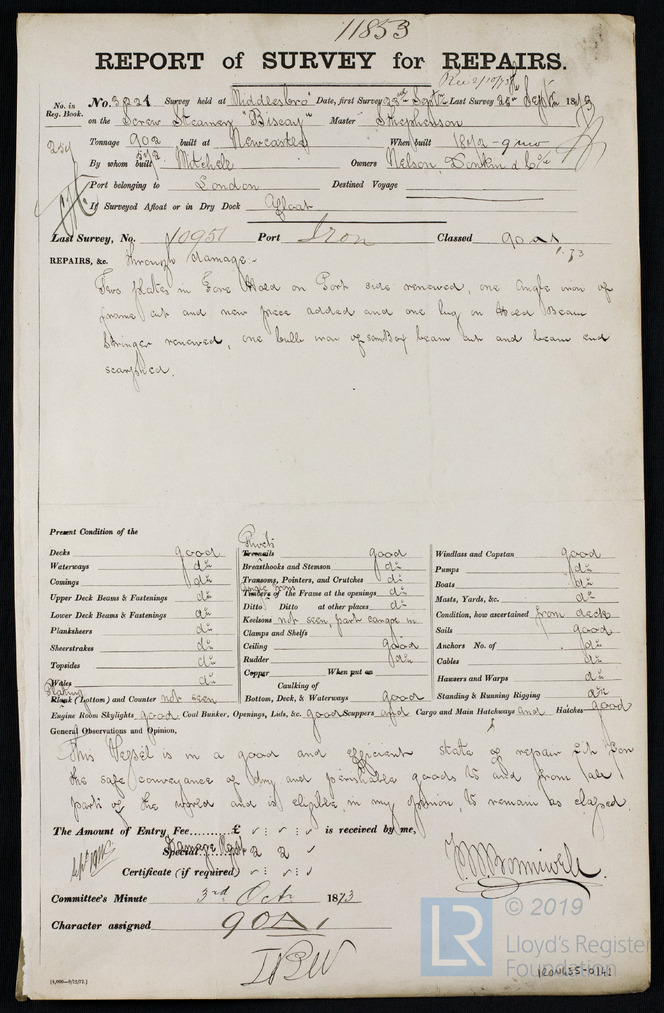 11853
REPORT of SURVEY for REPAIRS.
Rec 2/10/73
No. in Reg. Book. No. 3221 Survey held at Middlesbro' Date, first Survey 23rd Septr Last Survey 25th Septr 1873
on the Screw Steamer "Biscay" Master Stephenson
259 Tonnage 902 built at Newcastle When built 1872 - 9 mo
By whom built Mitchell Owners Nelson, Donkin & Co
Port belonging to London Destined Voyage
If Surveyed Afloat or in Dry Dock Afloat
Last Survey, No. 10951 Port Iron Classed 90 A 1
1.73
REPAIRS, &c. Through damage:-
Two plates in Fore Hold on Port side renewed, one angle iron of
frame cut and new piece added and one lug on Hold Beam
Stringer renewed, one bulb iron of beam cut and beam end
scarphed.
Present Condition of the
Decks good
Waterways do
Comings do
Upper Deck Beams & Fastenings do
Lower Deck Beams & Fastenings do
Planksheers do
Sheerstrakes do
Topsides do
Wales do
Plating
Plank (Bottom) and Counter not seen
Rivets
Treenails good
Breasthooks and Stemson do
Transoms, Pointers, and Crutches do
Angle Iron
Timbers of the Frame at the openings do
Ditto Ditto at other places do
Keelsons not seen, part cargo in
Clamps and Shelfs
Ceiling good
Rudder do
Copper When put on
Caulking of
Bottom, Deck, & Waterways good
Windlass and Capstan good
Pumps do
Boats do
Masts, Yards, &c. do
Condition, how ascertained from deck
Sails good
Anchors No. of do
Cables do
Hawsers and Warps do
Standing & Running Rigging do
Engine Room Skylights good Coal Bunker, Openings, Lids, &c. good Scuppers and Cargo and Main Hatchways and Hatches good
General Observations and Opinion,
This Vessel is in a good and efficient state of repair & fit for
the safe conveyance of dry and perishable goods to and from all
parts of the world and is eligible, in my opinion, to remain as classed.
The Amount of Entry Fee......... £ is received by me,
Special Damage 2 2
Certificate (if required)
Committee's Minute 3rd Oct 1873
Character assigned 90 A 1
[4,000—9/12/72.]
LR
© 2019
Lloyd's Register
Foundation